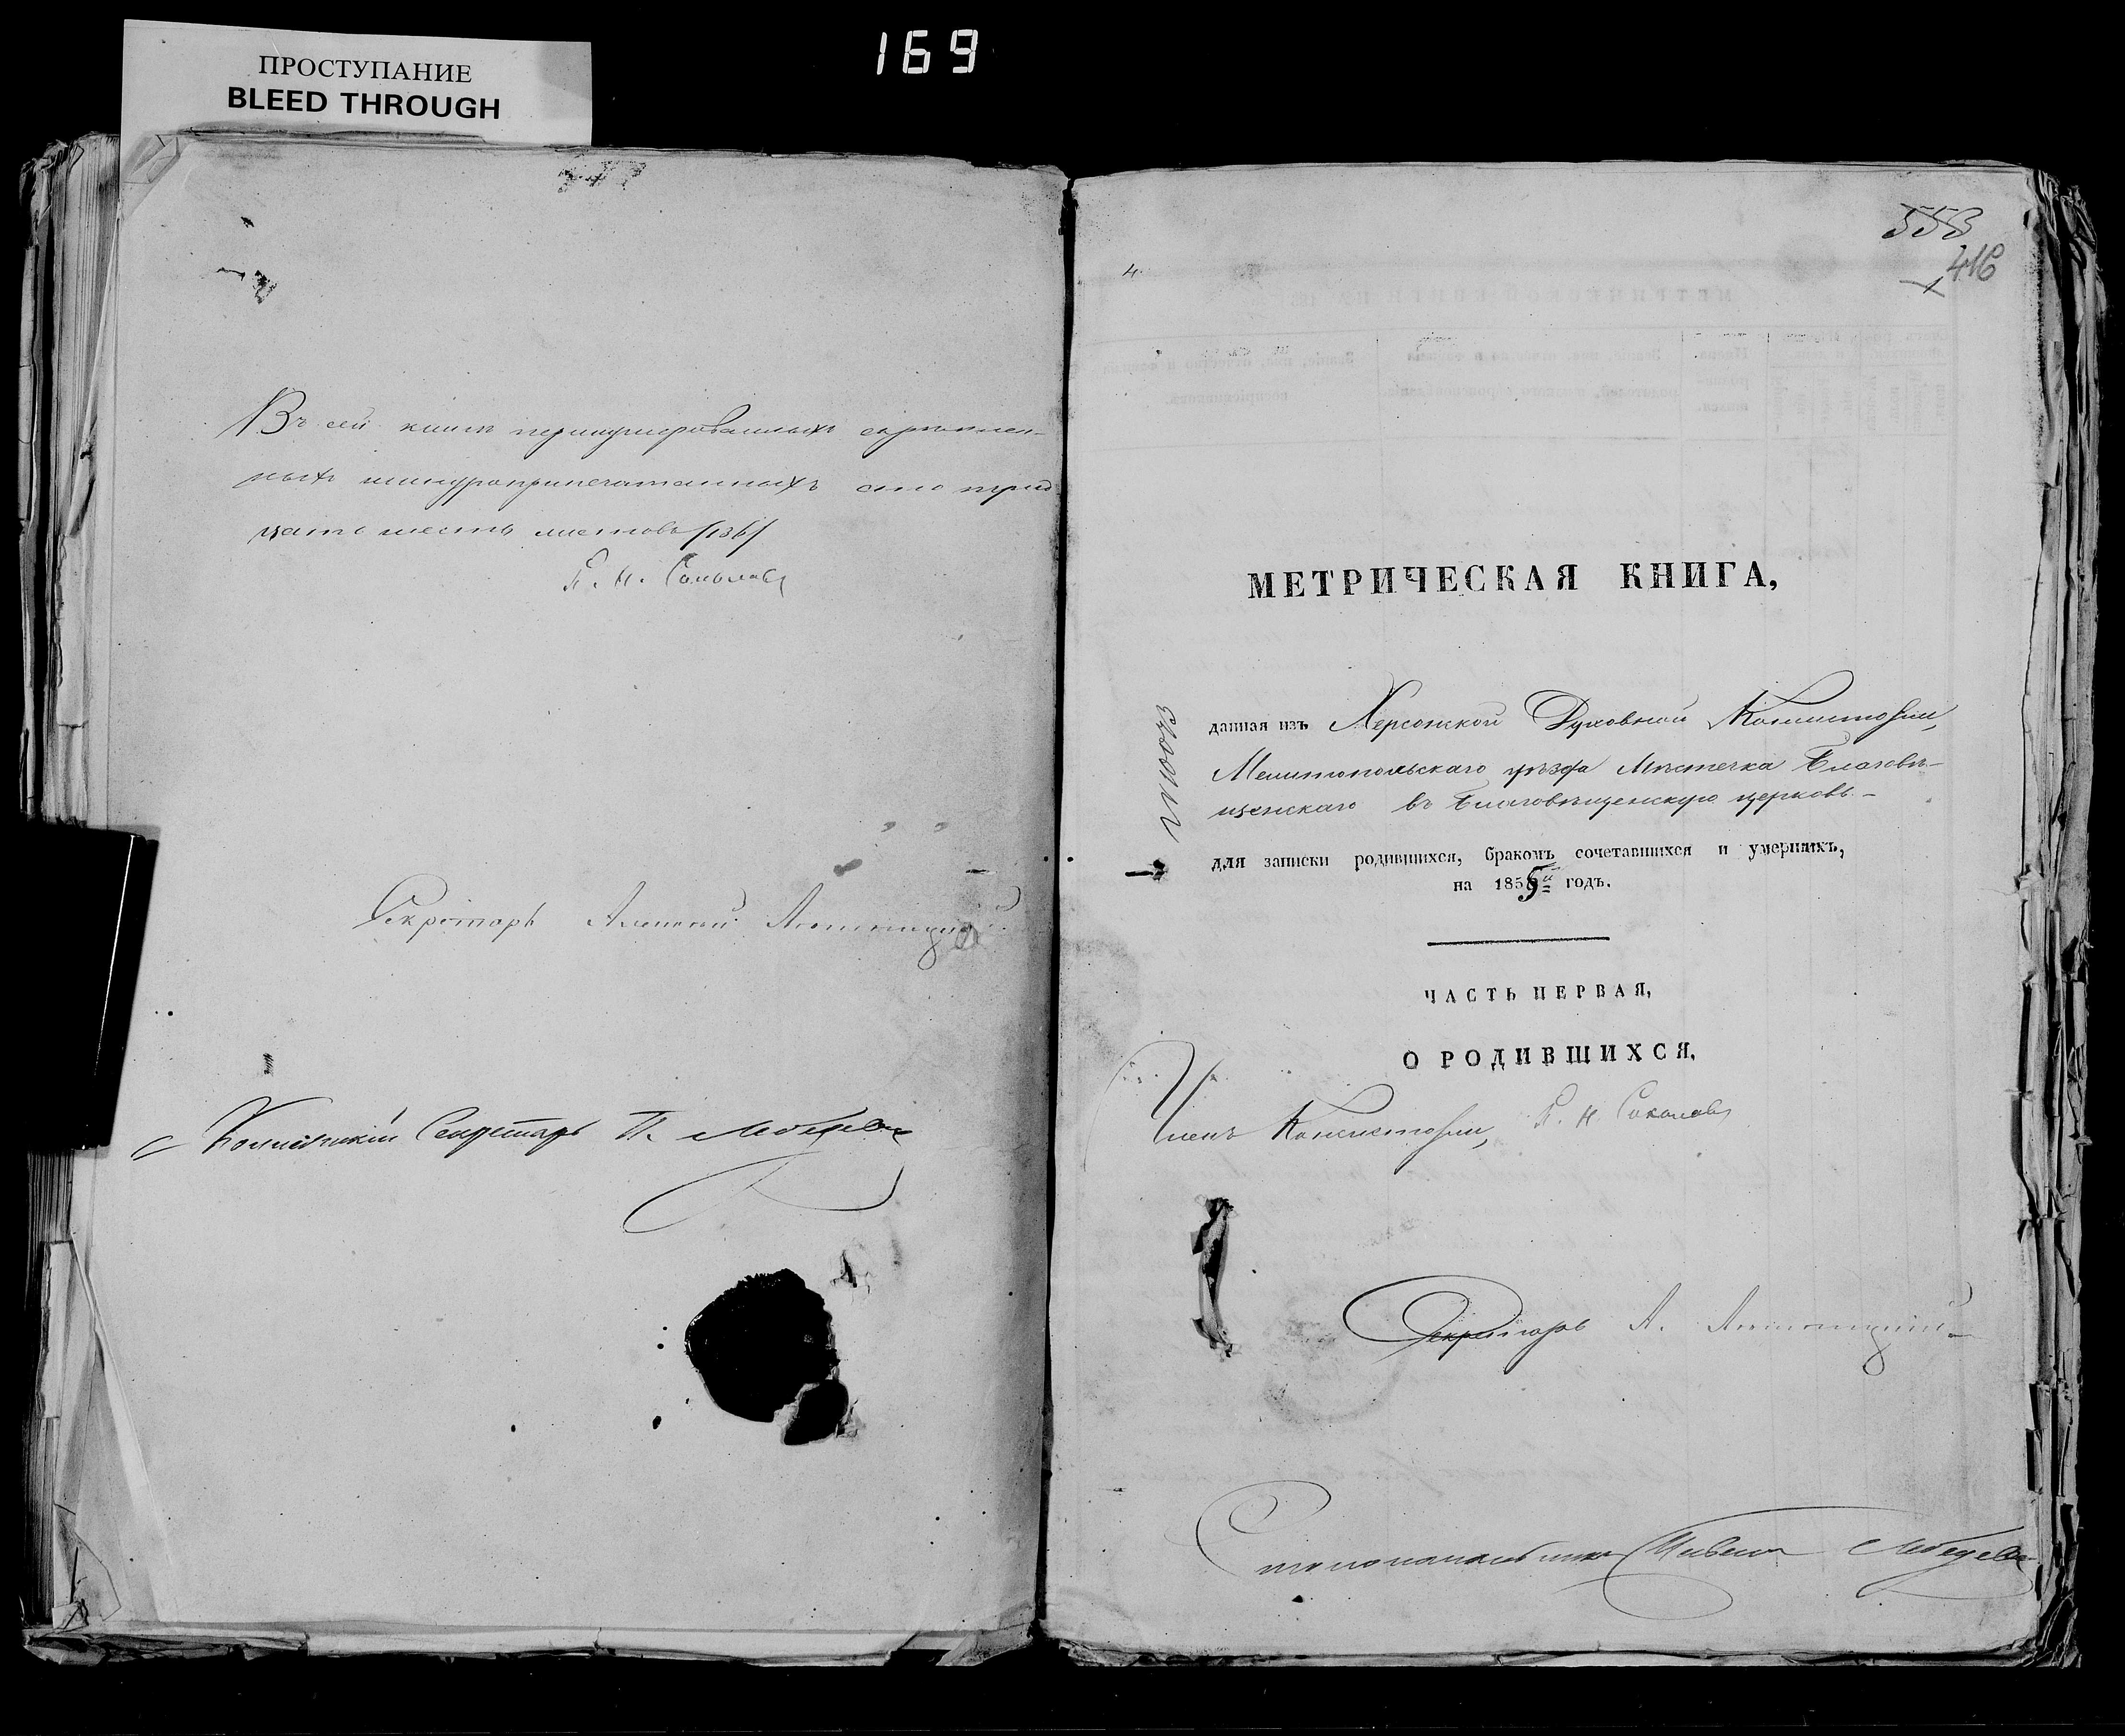 169
ПРОСТУПАНИЕ
BLEED THROUGH
Въ сей книгѣ перенумерованныхъ скрѣплен-
ныхъ шнуроприпечатанныхъ сто трид
цать шесть листовъ /136/
Секретарь
Коллежскій Секретарь П. Лебедевъ
558
416
4.
МЕТРИЧЕСКАЯ КНИГА,
данная изъ Херсонской Духовной Консисторіи,
Мелитопольскаго уѣзда Мѣстечка Благовѣ-
щенскаго въ Благовѣщенскую церковь.-
для записки родившихся, бракомъ сочетавшихся и умершихъ,
на 1855й годъ.
ЧАСТЬ ПЕРВАЯ,
О РОДИВШИХСЯ.
Членъ Консисторіи, Соколовъ
Секретарь А.
Столоначальникъ Лебедевъ